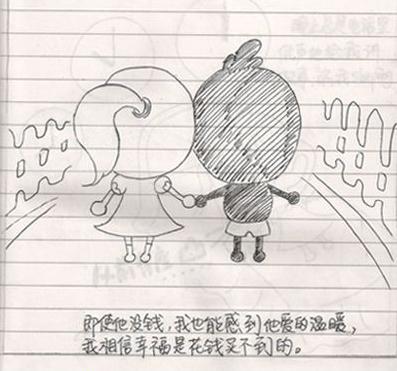 即使他没钱,我也能感到他爱的温暖,
我相信幸福是花钱买不到的。